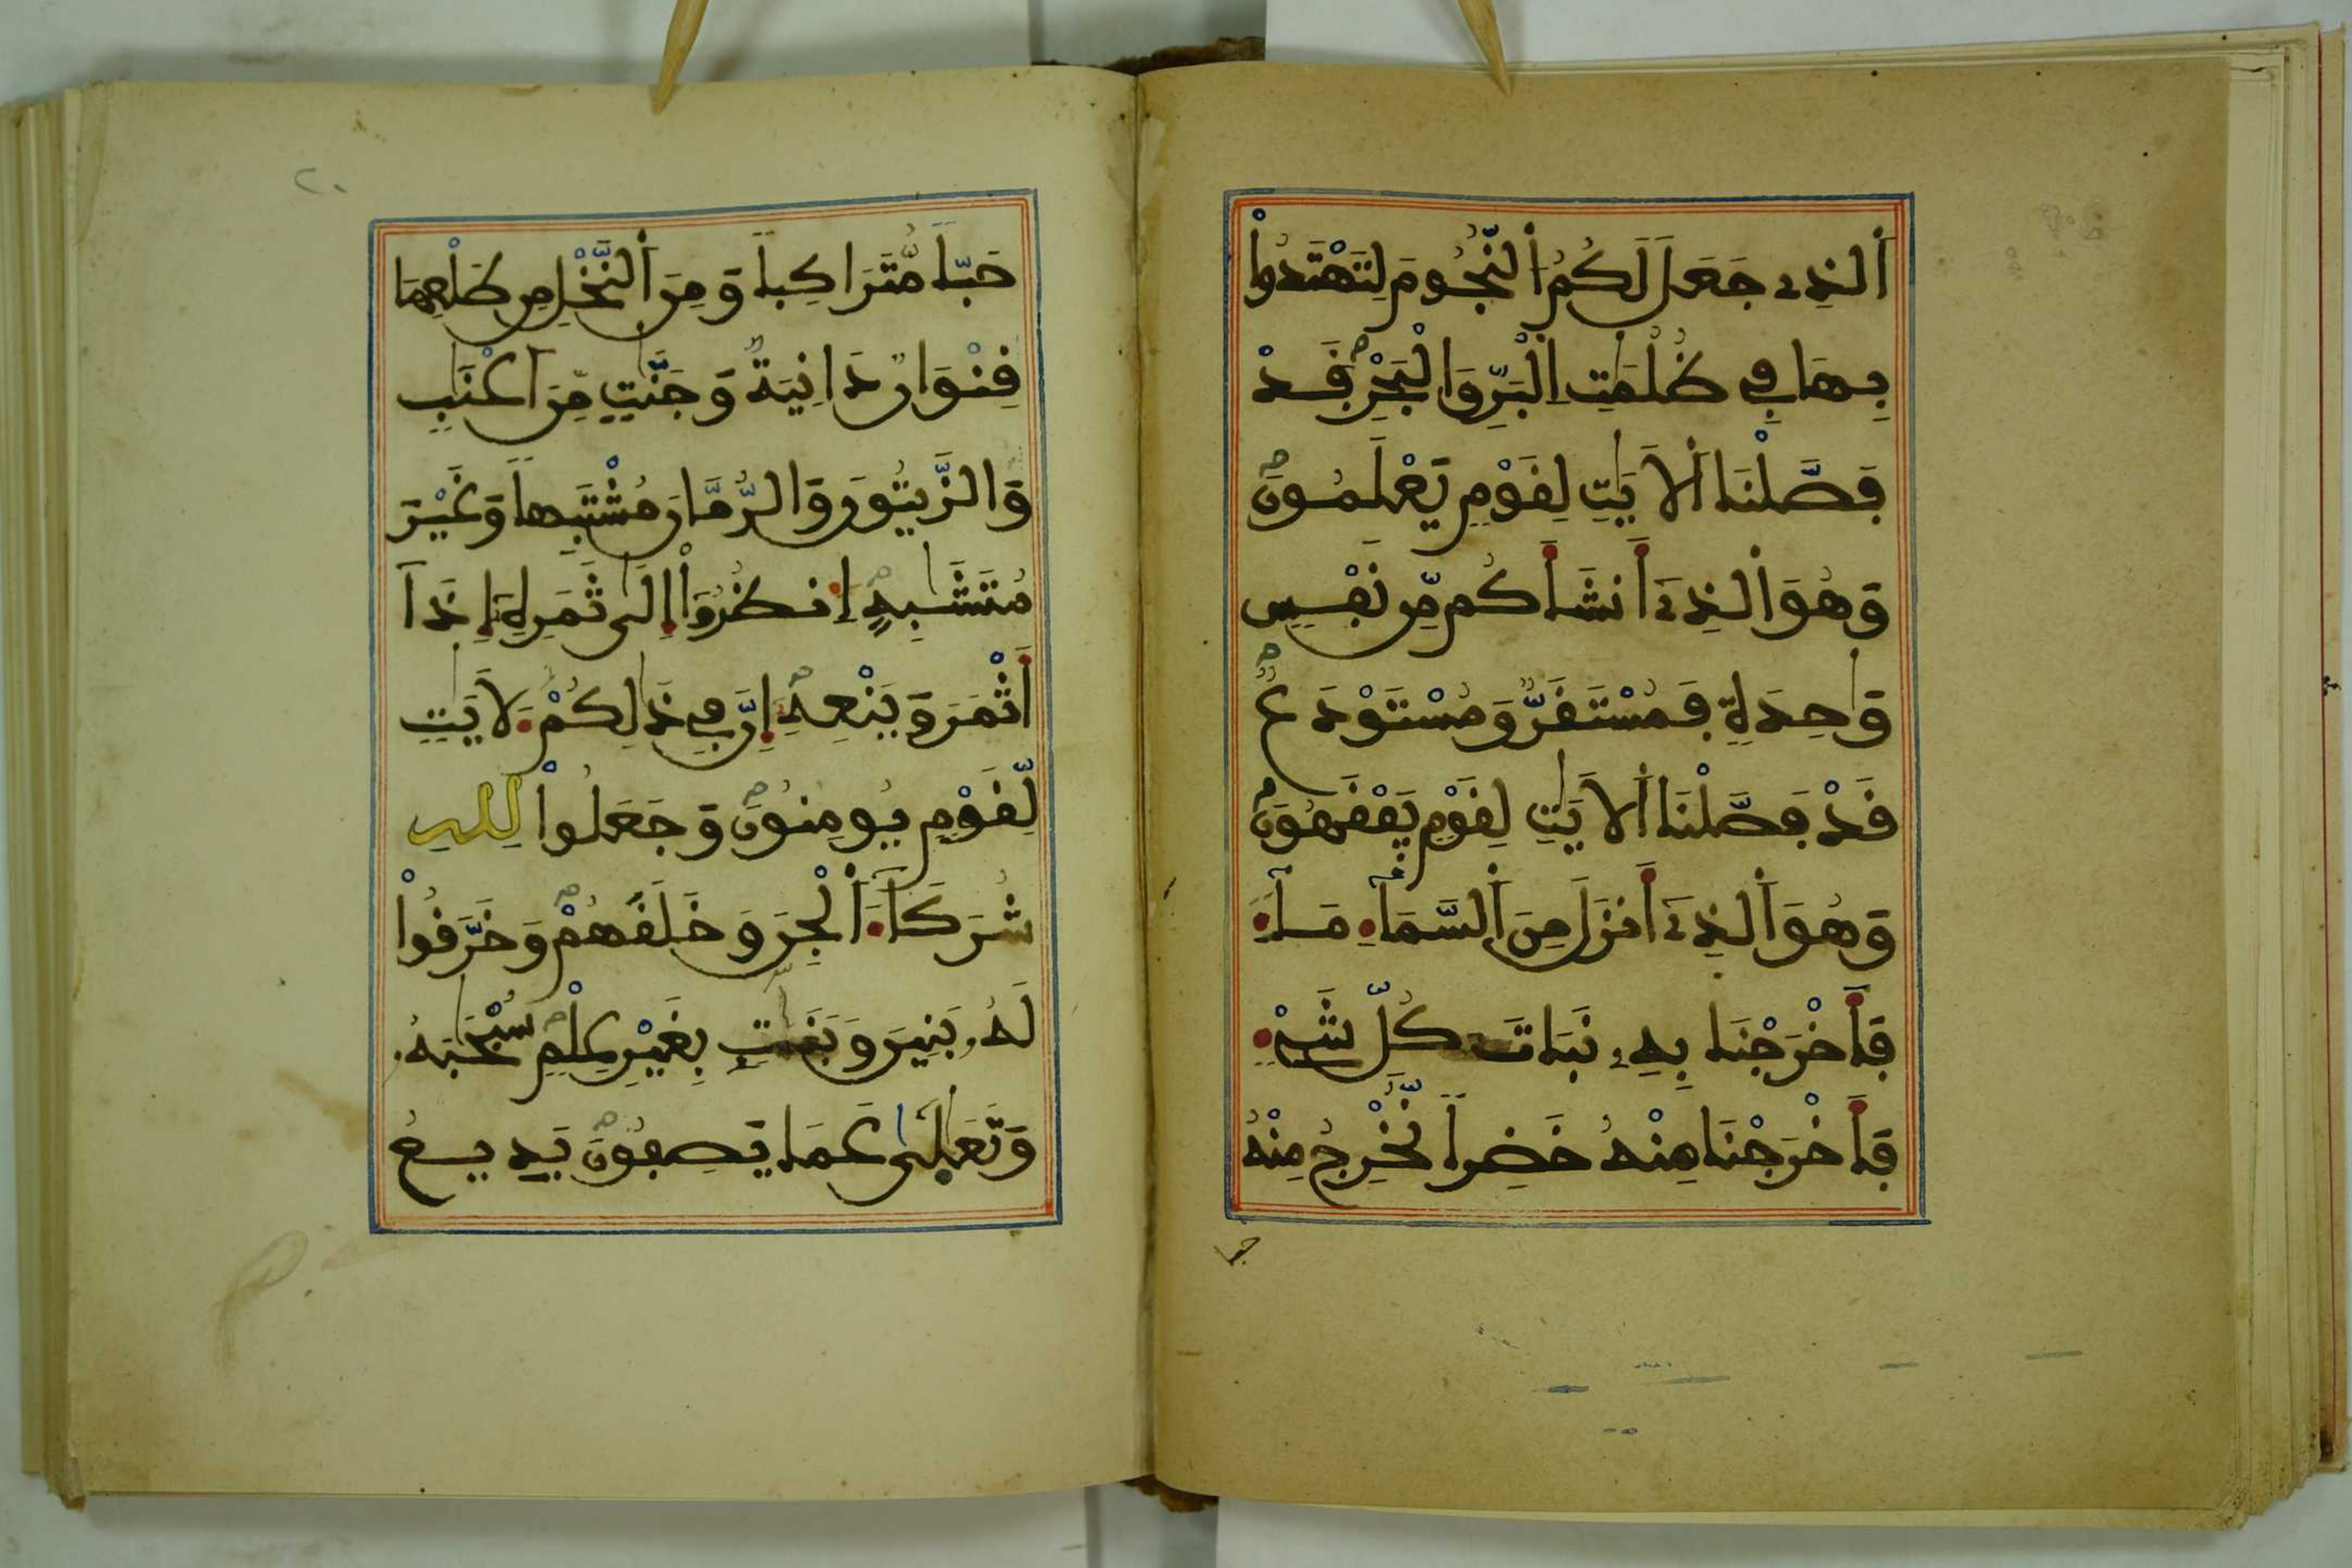 اَ۬لذِے جَعَلَ لَكُمُ اُ۬لنُّجُومَ لِتَهْتَدُواْ
بِهَا فِے ظُلُمَٰتِ اِ۬لْبَرِّ وَالْبَحْرِۖ قَدْ
فَصَّلْنَا اَ۬لَايَٰتِ لِقَوْمٖ يَعْلَمُونَۖ
وَهُوَ اَ۬لذِےٓ أَنشَأَكُم مِّن نَّفْسٖ
وَٰحِدَةٖ فَمُسْتَقَرّٞ وَمُسْتَوْدَعٞۖ
قَدْ فَصَّلْنَا اَ۬لَايَٰتِ لِقَوْمٖ يَفْقَهُونَۖ
وَهُوَ اَ۬لذِےٓ أَنزَلَ مِنَ اَ۬لسَّمَآءِ مَآءٗ
فَأَخْرَجْنَا بِهِۦ نَبَاتَ كُلِّ شَےْءٖ
فَأَخْرَجْنَا مِنْهُ خَضِراٗ نُّخْرِجُ مِنْهُ
حبا
٢٠
حَبّاٗ مُّتَرَاكِباٗ وَمِنَ اَ۬لنَّخْلِ مِن طَلْعِهَا
قِنْوَانٞ دَانِيَةٞ وَجَنَّٰتٖ مِّنَ اَعْنَٰبٖ
وَالزَّيْتُونَ وَالرُّمَّانَ مُشْتَبِهاٗ وَغَيْرَ
مُتَشَٰبِهٍۖ اِ۟نظُرُوٓاْ إِلَىٰ ثَمَرِهِۦٓ إِذَآ
أَثْمَرَ وَيَنْعِهِۦٓۖ إِنَّ فِے ذَٰلِكُمْ لَأٓيَٰتٖ
لِّقَوْمٖ يُومِنُونَۖ وَجَعَلُواْ لِلهِ
شُرَكَآءَ اَ۬لْجِنَّ وَخَلَقَهُمْۖ وَخَرَّقُواْ
لَهُۥ بَنِينَ وَبَنَٰتِۢ بِغَيْرِ عِلْمٖۖ سُبْحَٰنَهُۥ
وَتَعَٰلَىٰ عَمَّا يَصِفُونَۖ بَدِيعُ